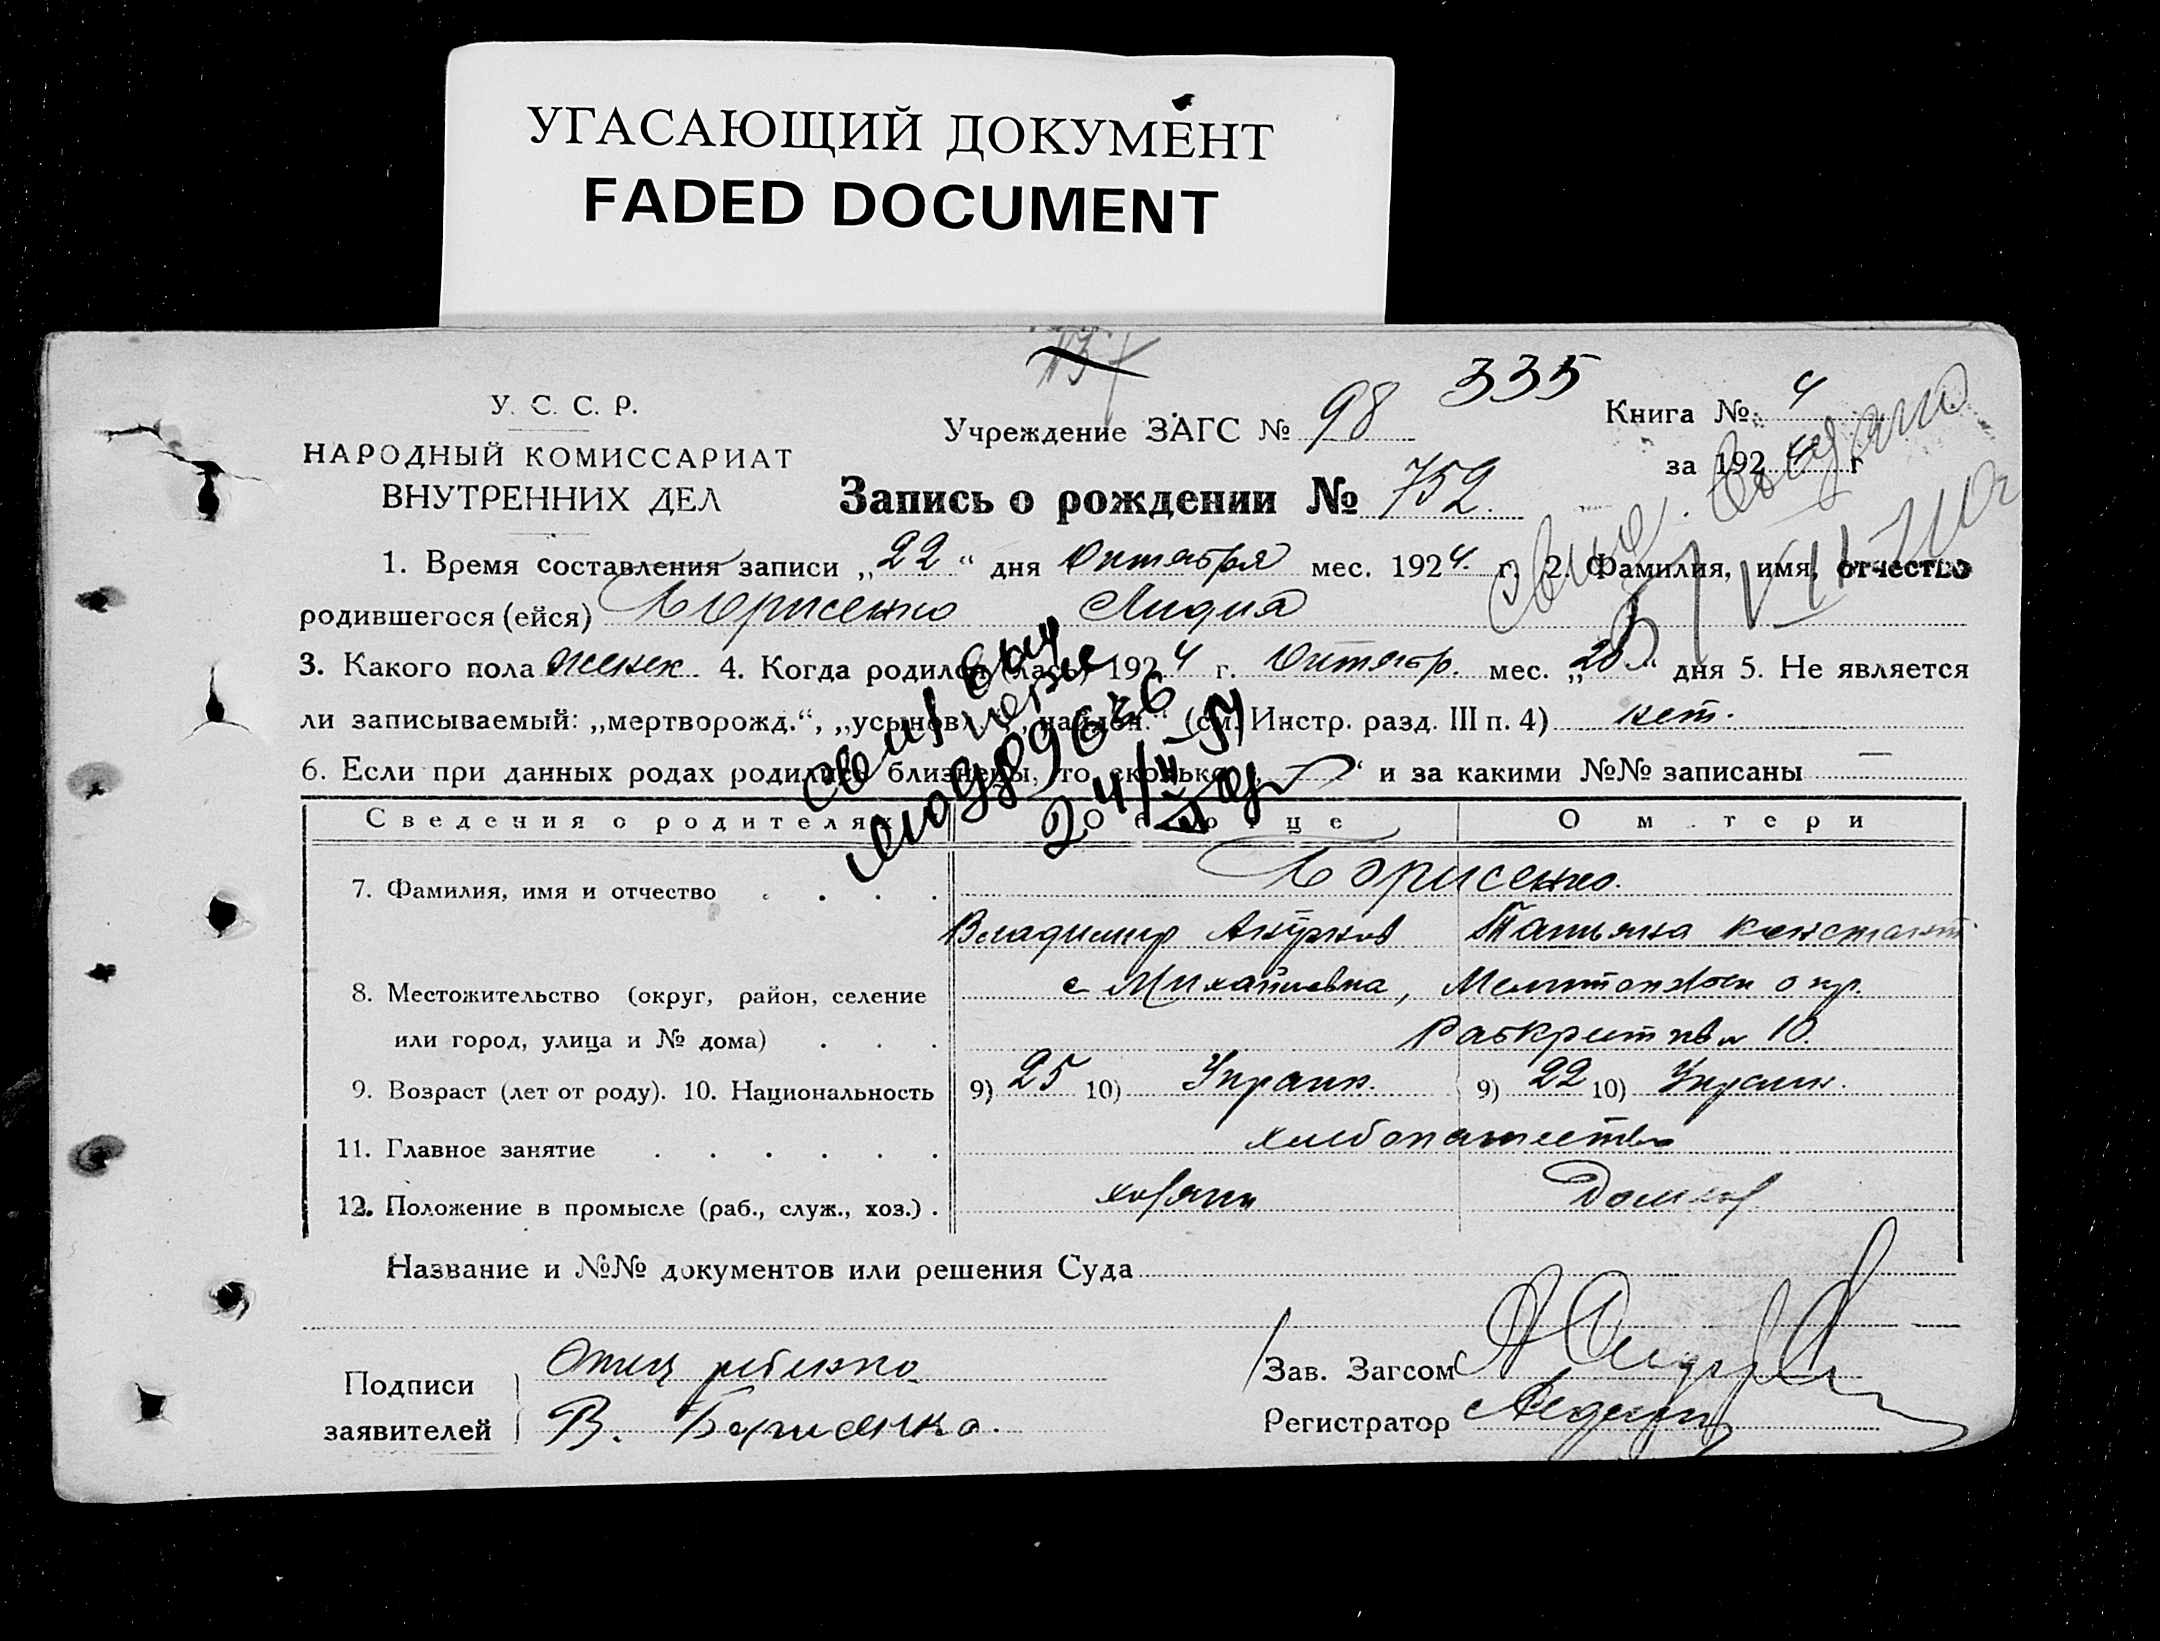 УГАСАЮЩИЙ ДОКУМЕНТ
FADED DOCUMENT
335
У. С. С. Р.
НАРОДНЫЙ КОМИССАРИАТ
ВНУТРЕННИХ ДЕЛ
Учреждение ЗАГС № 98
Книга № 4
за 1924 г
Запись о рождении № 752.
выдано
1. Время составления записи „22“ дня Октября мес. 1924. г. 2. Фамилия, имя, отчество
родившегося (ейся) Борисенко Лидия
3. Какого пола женск. 4. Когда родился (лась) 1924 г. Октябр. мес. „20“ дня 5. Не является
ли записываемый: „мертворожд.“, „усыновл.“, „найден.“ (см. Инстр. разд. III п. 4) нет.
6. Если при данных родах родились близнецы, то сколько „—“ и за какими №№ записаны —
Сведения о родителях
О б о т це
О м тери
7. Фамилия, имя и отчество
Борисенко.
Владимир
Татьяна Констант
8. Местожительство (округ, район, селение
или город, улица и № дома)
с Михайловка, Мелитопольск окр.
10.
9. Возраст (лет от роду). 10. Национальность
9) 25 10) Украин.
9) 22 10) Украин.
11. Главное занятие
хлебопашество
12. Положение в промысле (раб., служ., хоз.)
хозяин
Домхоз
Название и №№ документов или решения Суда
Подписи
заявителей
Отец ребенка
В. Борисенко.
Зав. Загсом
Регистратор